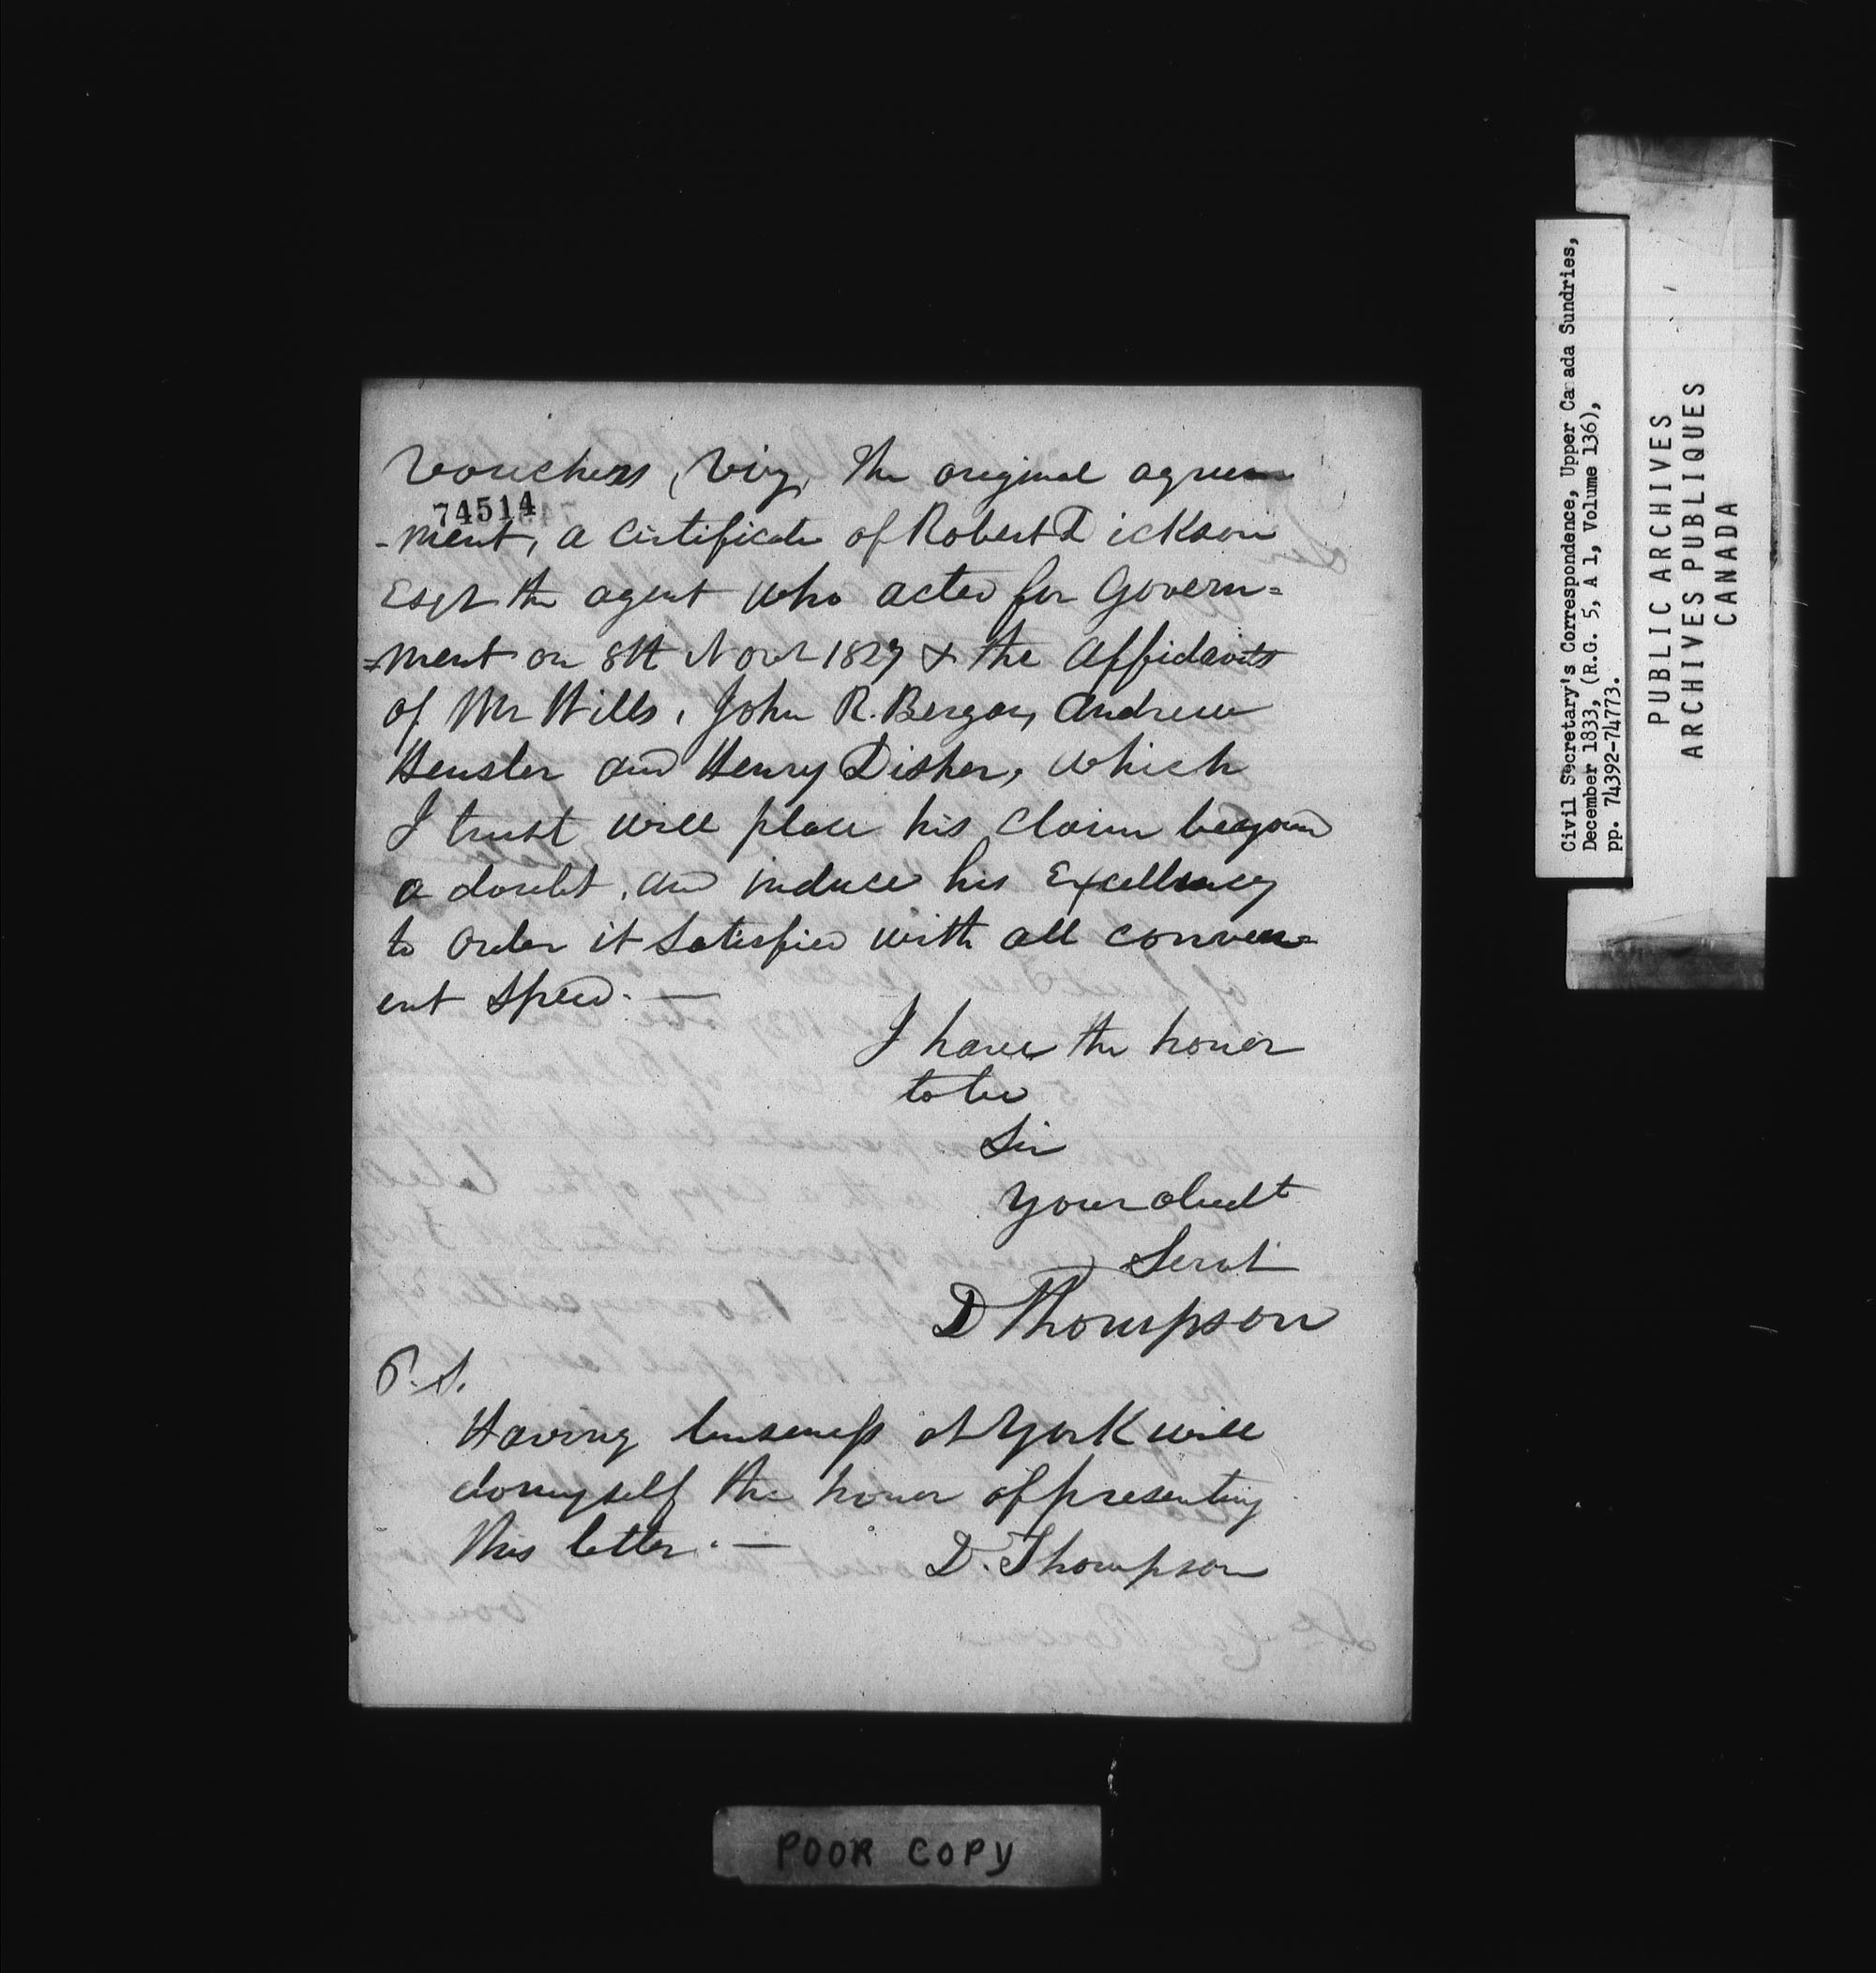 Vouchers, Viz, the original agree
74514
-ment, a Certificate of Robert Dickson
Esqr the agent who acted for Govern=
=ment on 8th Novr 1827 & the affidavits
of Mr Hills, John R. Bergar, Andrew
Hensler and Henry Disher, which
I trust will place his claim beyond
a doubt, and induce his Excellency
to order it Satisfied with all conveni=
ent speed. —
I have the honor
to be
Sir
Your obedt
Servt
D Thompson
P.S.
Having business at York will
do myself the honor of presenting
this letter. — D. Thompson
POOR COPY
Civil Secretary's Correspondence, Upper Canada Sundries,
December 1833, (R.G. 5, A 1, Volume 136),
pp. 74392-74773.
PUBLIC ARCHIVES
ARCHIVES PUBLIQUES
CANADA